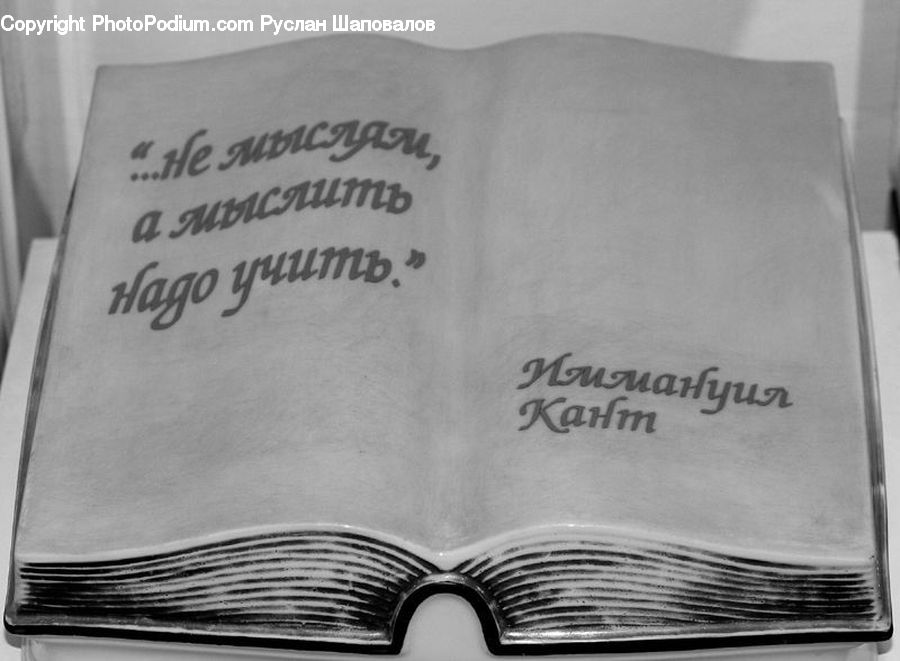 Copyright PhotoPodium.com Руслан Шаповалов
“...не мыслям,
а мыслить
надо учить.”
Иммануил
Кант